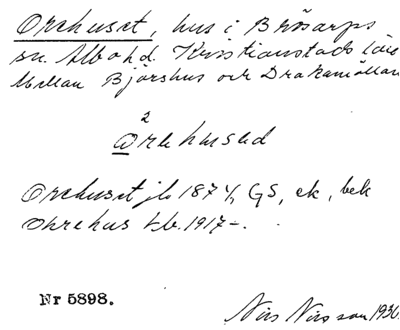 Orehuset, hus i Brösarps
sn. Albo hd. Kristianstads län
Mellan Björshus och Drakamöllan
2
ωrehused
Orehuset jb 1874, GS, ek, bek
Ohrehus kb. 1917-.
Nr 5898.
Nils Nilsson 1930.